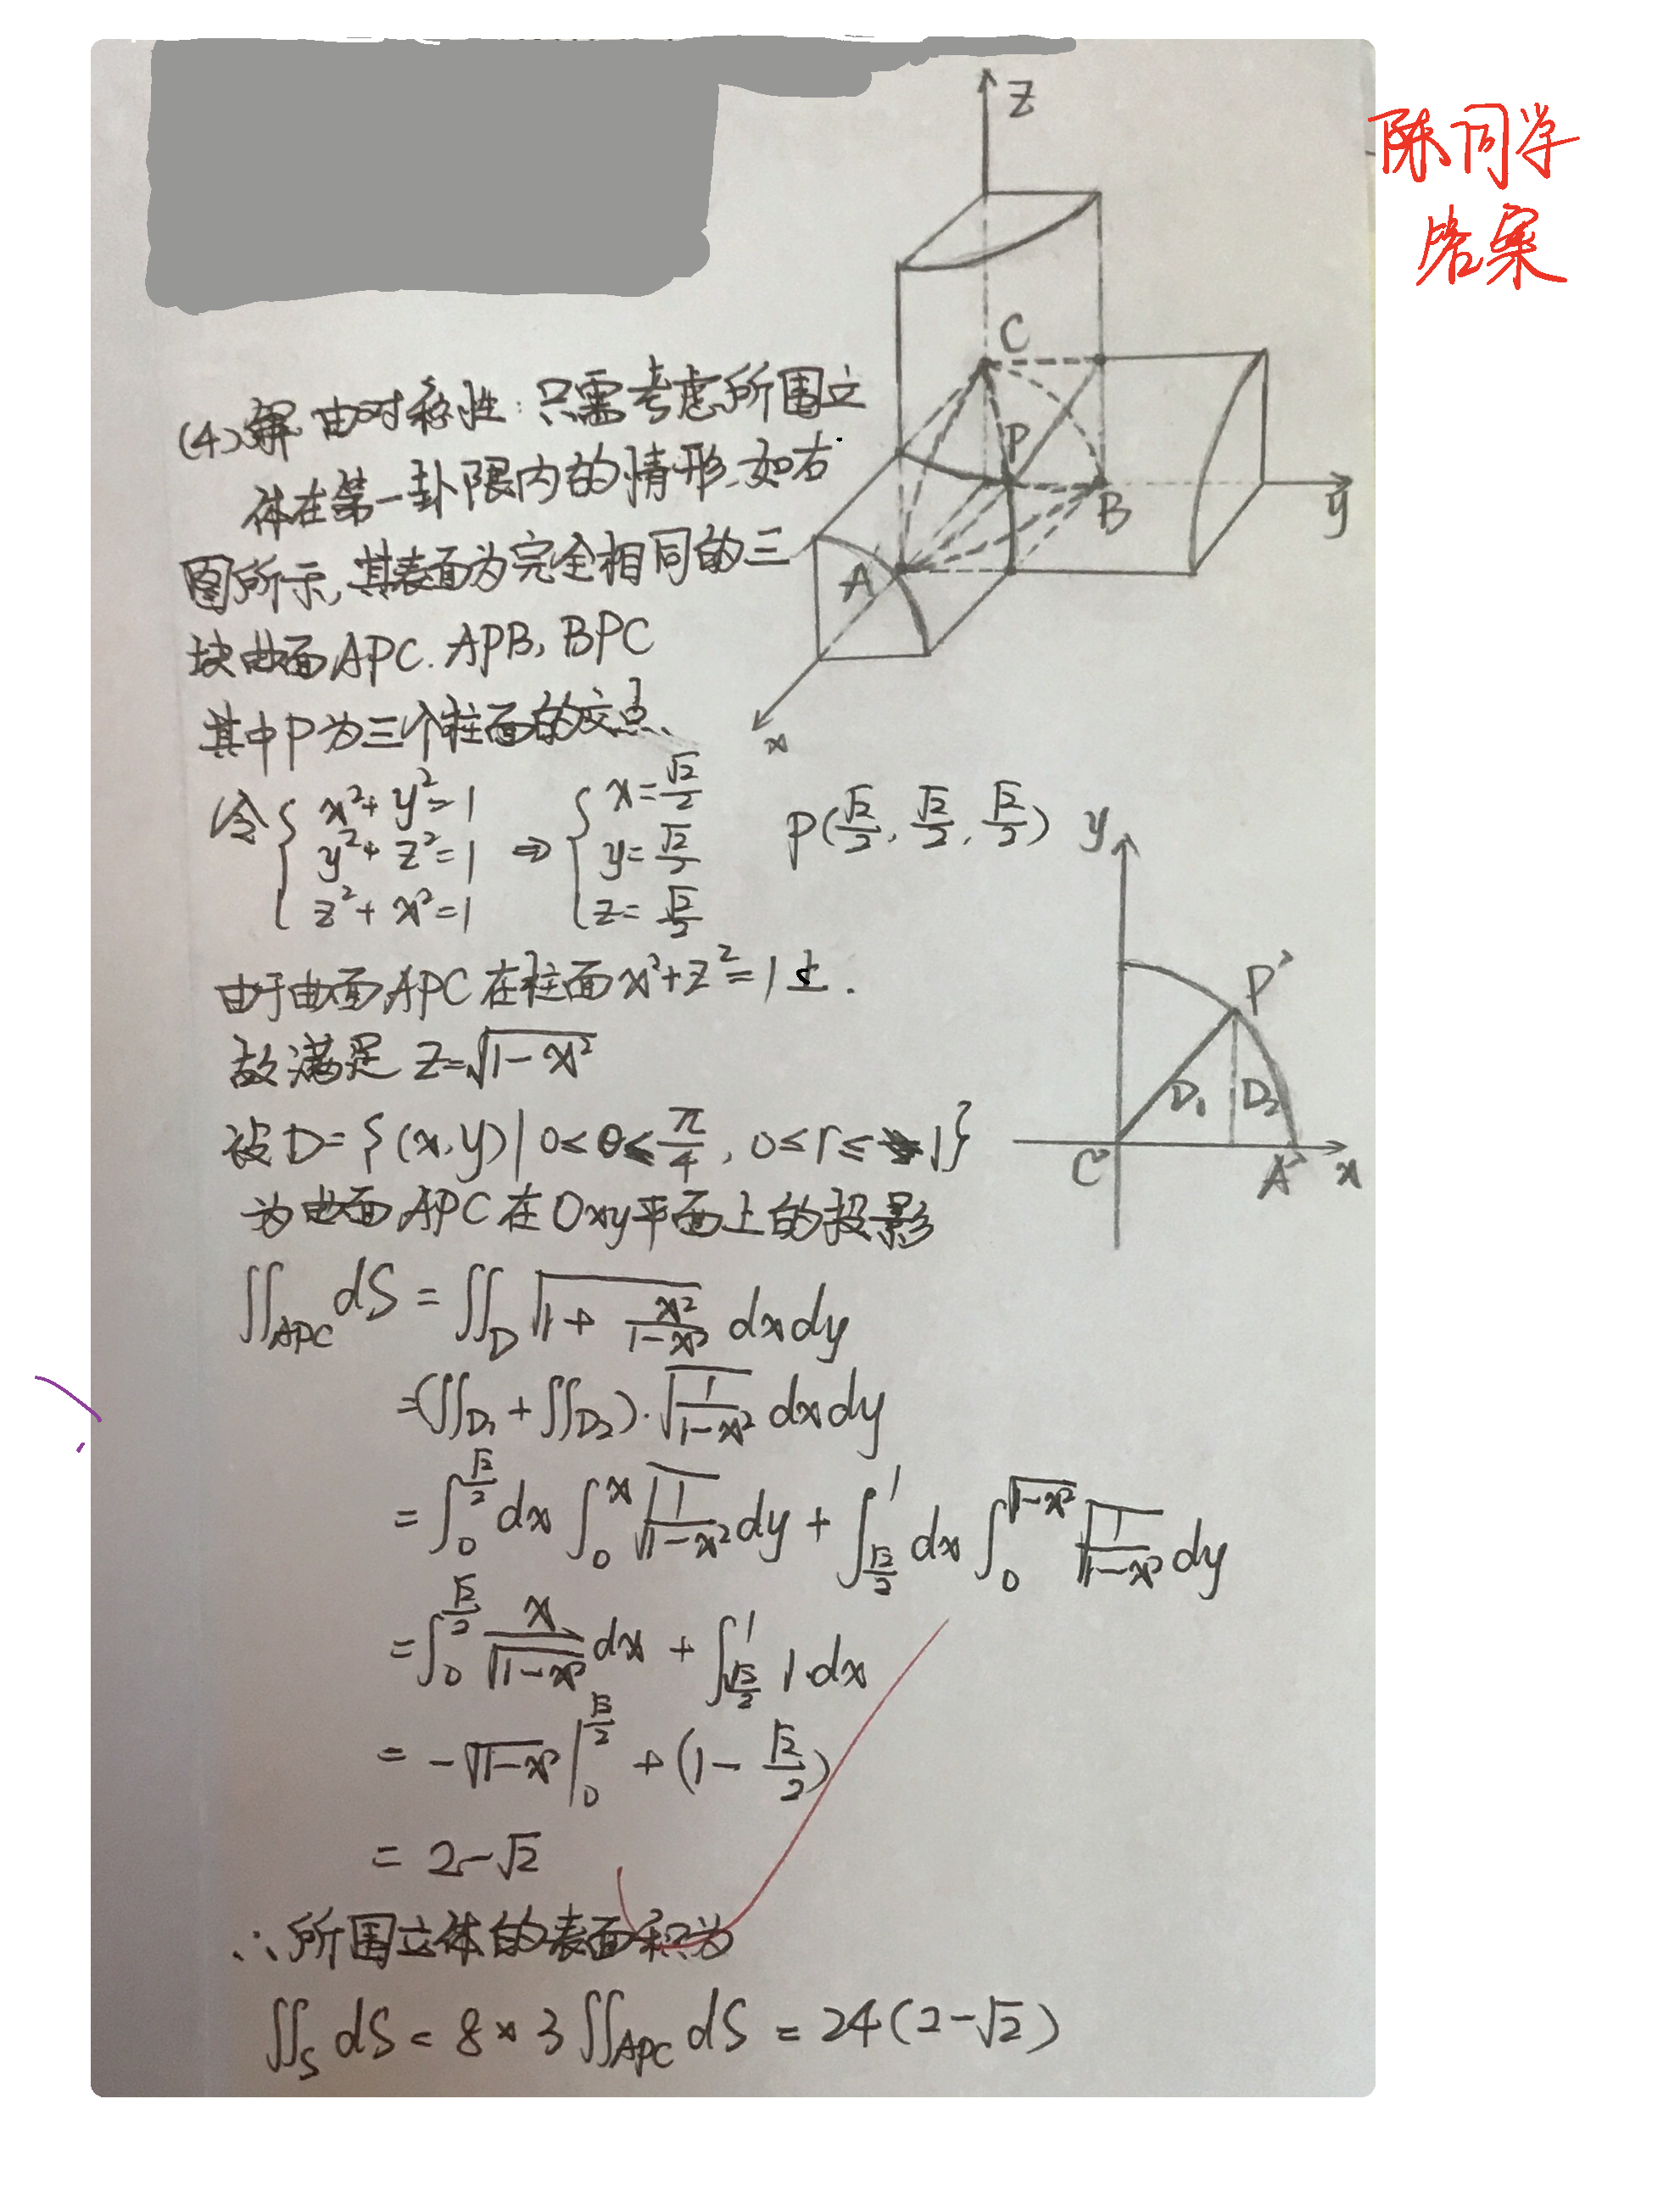 陈同学
答案
z
C
P
B
y
A
x
(4)解 由对称性:只需考虑所围立
体在第一卦限内的情形.如右
图所示,其表面为完全相同的三
块曲面APC.APB,BPC
其中P为三个柱面的交点、
令{ x²+y²=1
y²+z²=1
z²+x²=1 ⇒ { x=√2/2
y=√2/2
z=√2/2 P(√2/2,√2/2,√2/2)
y
P'
D₁ D₂
C' A' x
由于曲面APC在柱面x²+z²=1上.
故满足 z=√(1-x²)
设D={(x,y)|0≤θ≤π/4,0≤r≤1}
为曲面APC在Oxy平面上的投影
∬_APC dS = ∬_D √(1+x²/(1-x²)) dxdy
=(∬_D₁+∬_D₂)·√(1/(1-x²)) dxdy
=∫_0^(√2/2) dx ∫_0^x √(1/(1-x²)) dy + ∫_(√2/2)^1 dx ∫_0^√(1-x²) √(1/(1-x²)) dy
=∫_0^(√2/2) x/√(1-x²) dx + ∫_(√2/2)^1 1·dx
= -√(1-x²)|_0^(√2/2) + (1-√2/2)
= 2-√2
∴所围立体的表面积为
∬_S dS = 8×3∬_APC dS = 24(2-√2)